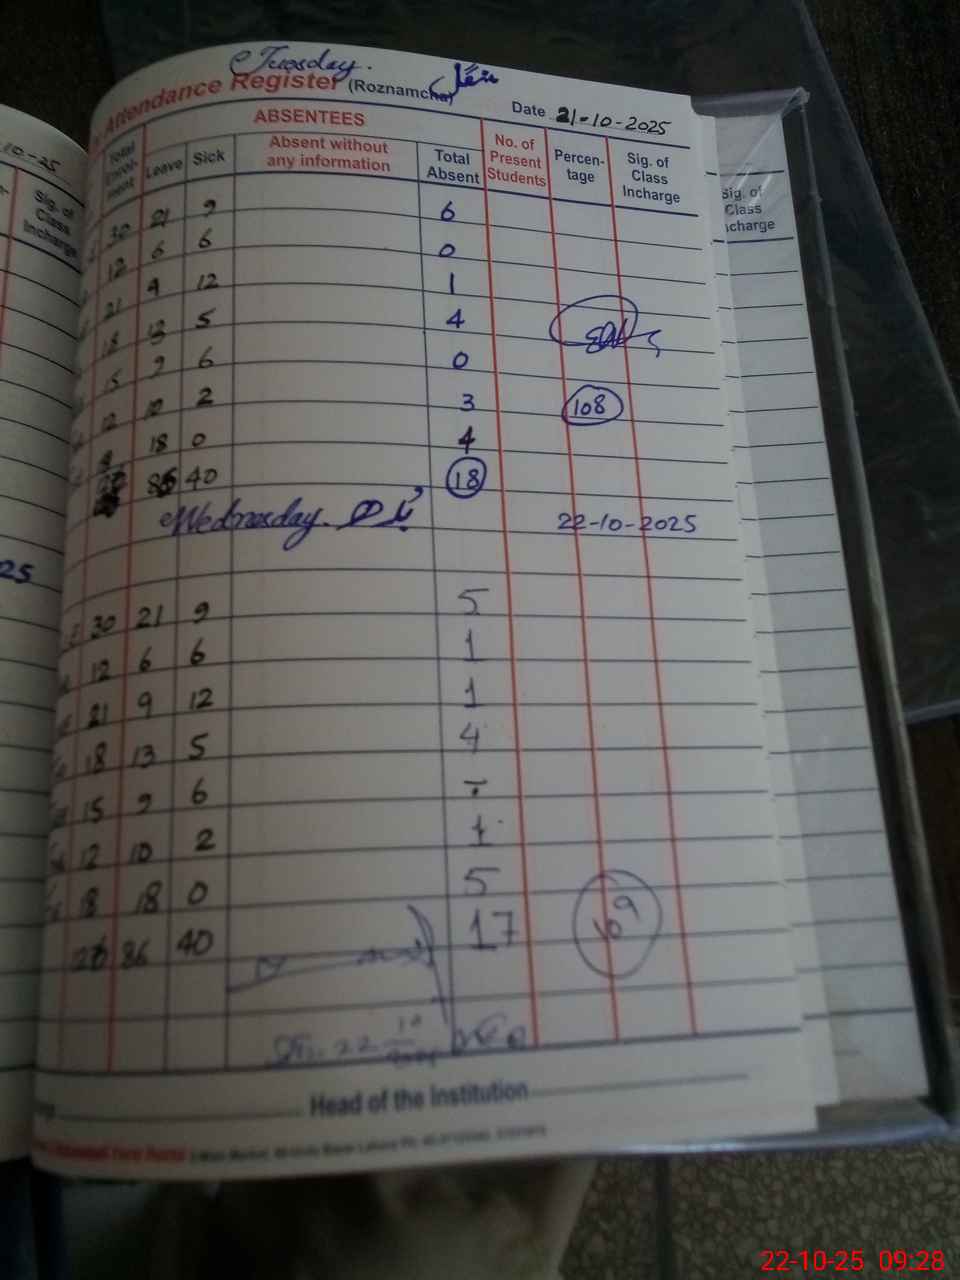 Tuesday. منگل
Attendance Register (Roznamcha)
Date 21-10-2025
ABSENTEES
Total Enrol-ment Leave Sick Absent without any information Total Absent No. of Present Students Percen-tage Sig. of Class Incharge
30 21 9 6
12 6 6 0
21 9 12 1
18 13 5 4
15 9 6 0
12 10 2 3 108
18 0 4
86 40 18
Wednesday. بدھ 22-10-2025
30 21 9 5
12 6 6 1
21 9 12 1
18 13 5 4
15 9 6 -
12 10 2 1
18 18 0 5
86 40 17 109
22
Head of the Institution
10-25
Sig. of Class Incharge
25
Sig. of Class Incharge
22-10-25 09:28